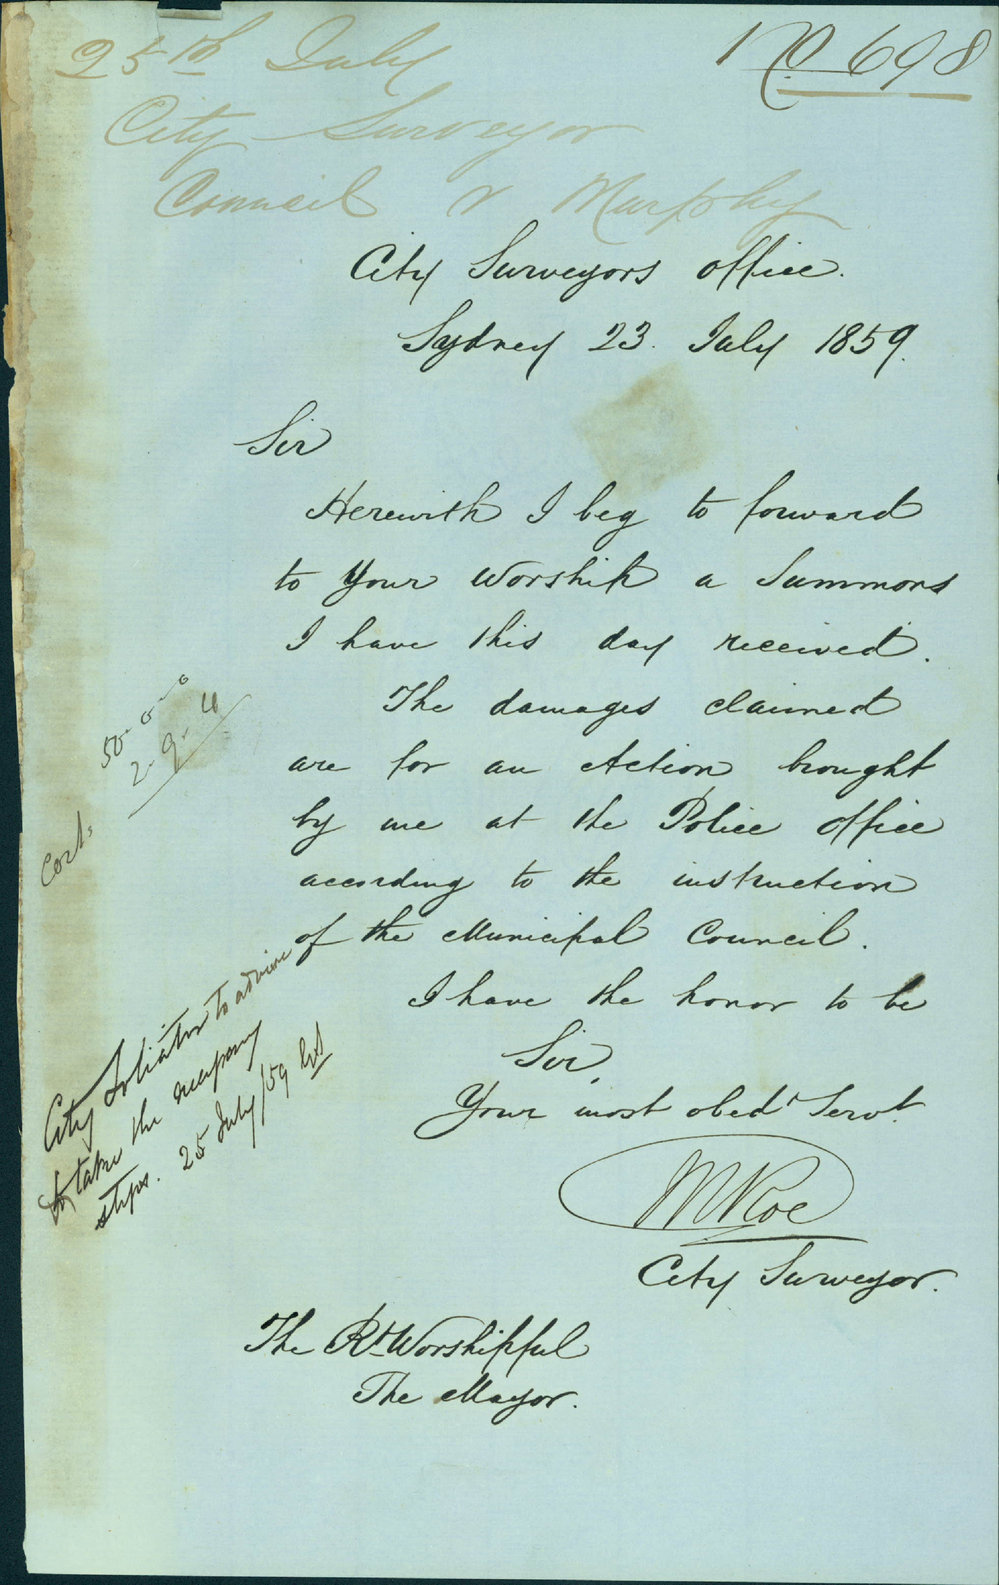 No 698
25th July
City Surveyor
Council v Murphy
City Surveyors office.
Sydney 23. July 1859.
Sir
Herewith I beg to forward
to Your Worship a Summons
I have this day received.
The damages claimed
are for an Action brought
by me at the Police office
according to the instruction
of the Municipal Council.
I have the honor to be
Sir,
Your most obedt Servt.
City Surveyor.
The Rt Worshipful
The Mayor.
50-0-0
Costs 2-9-4
City Solicitor to advise
& take the necessary
steps. 25 July/59